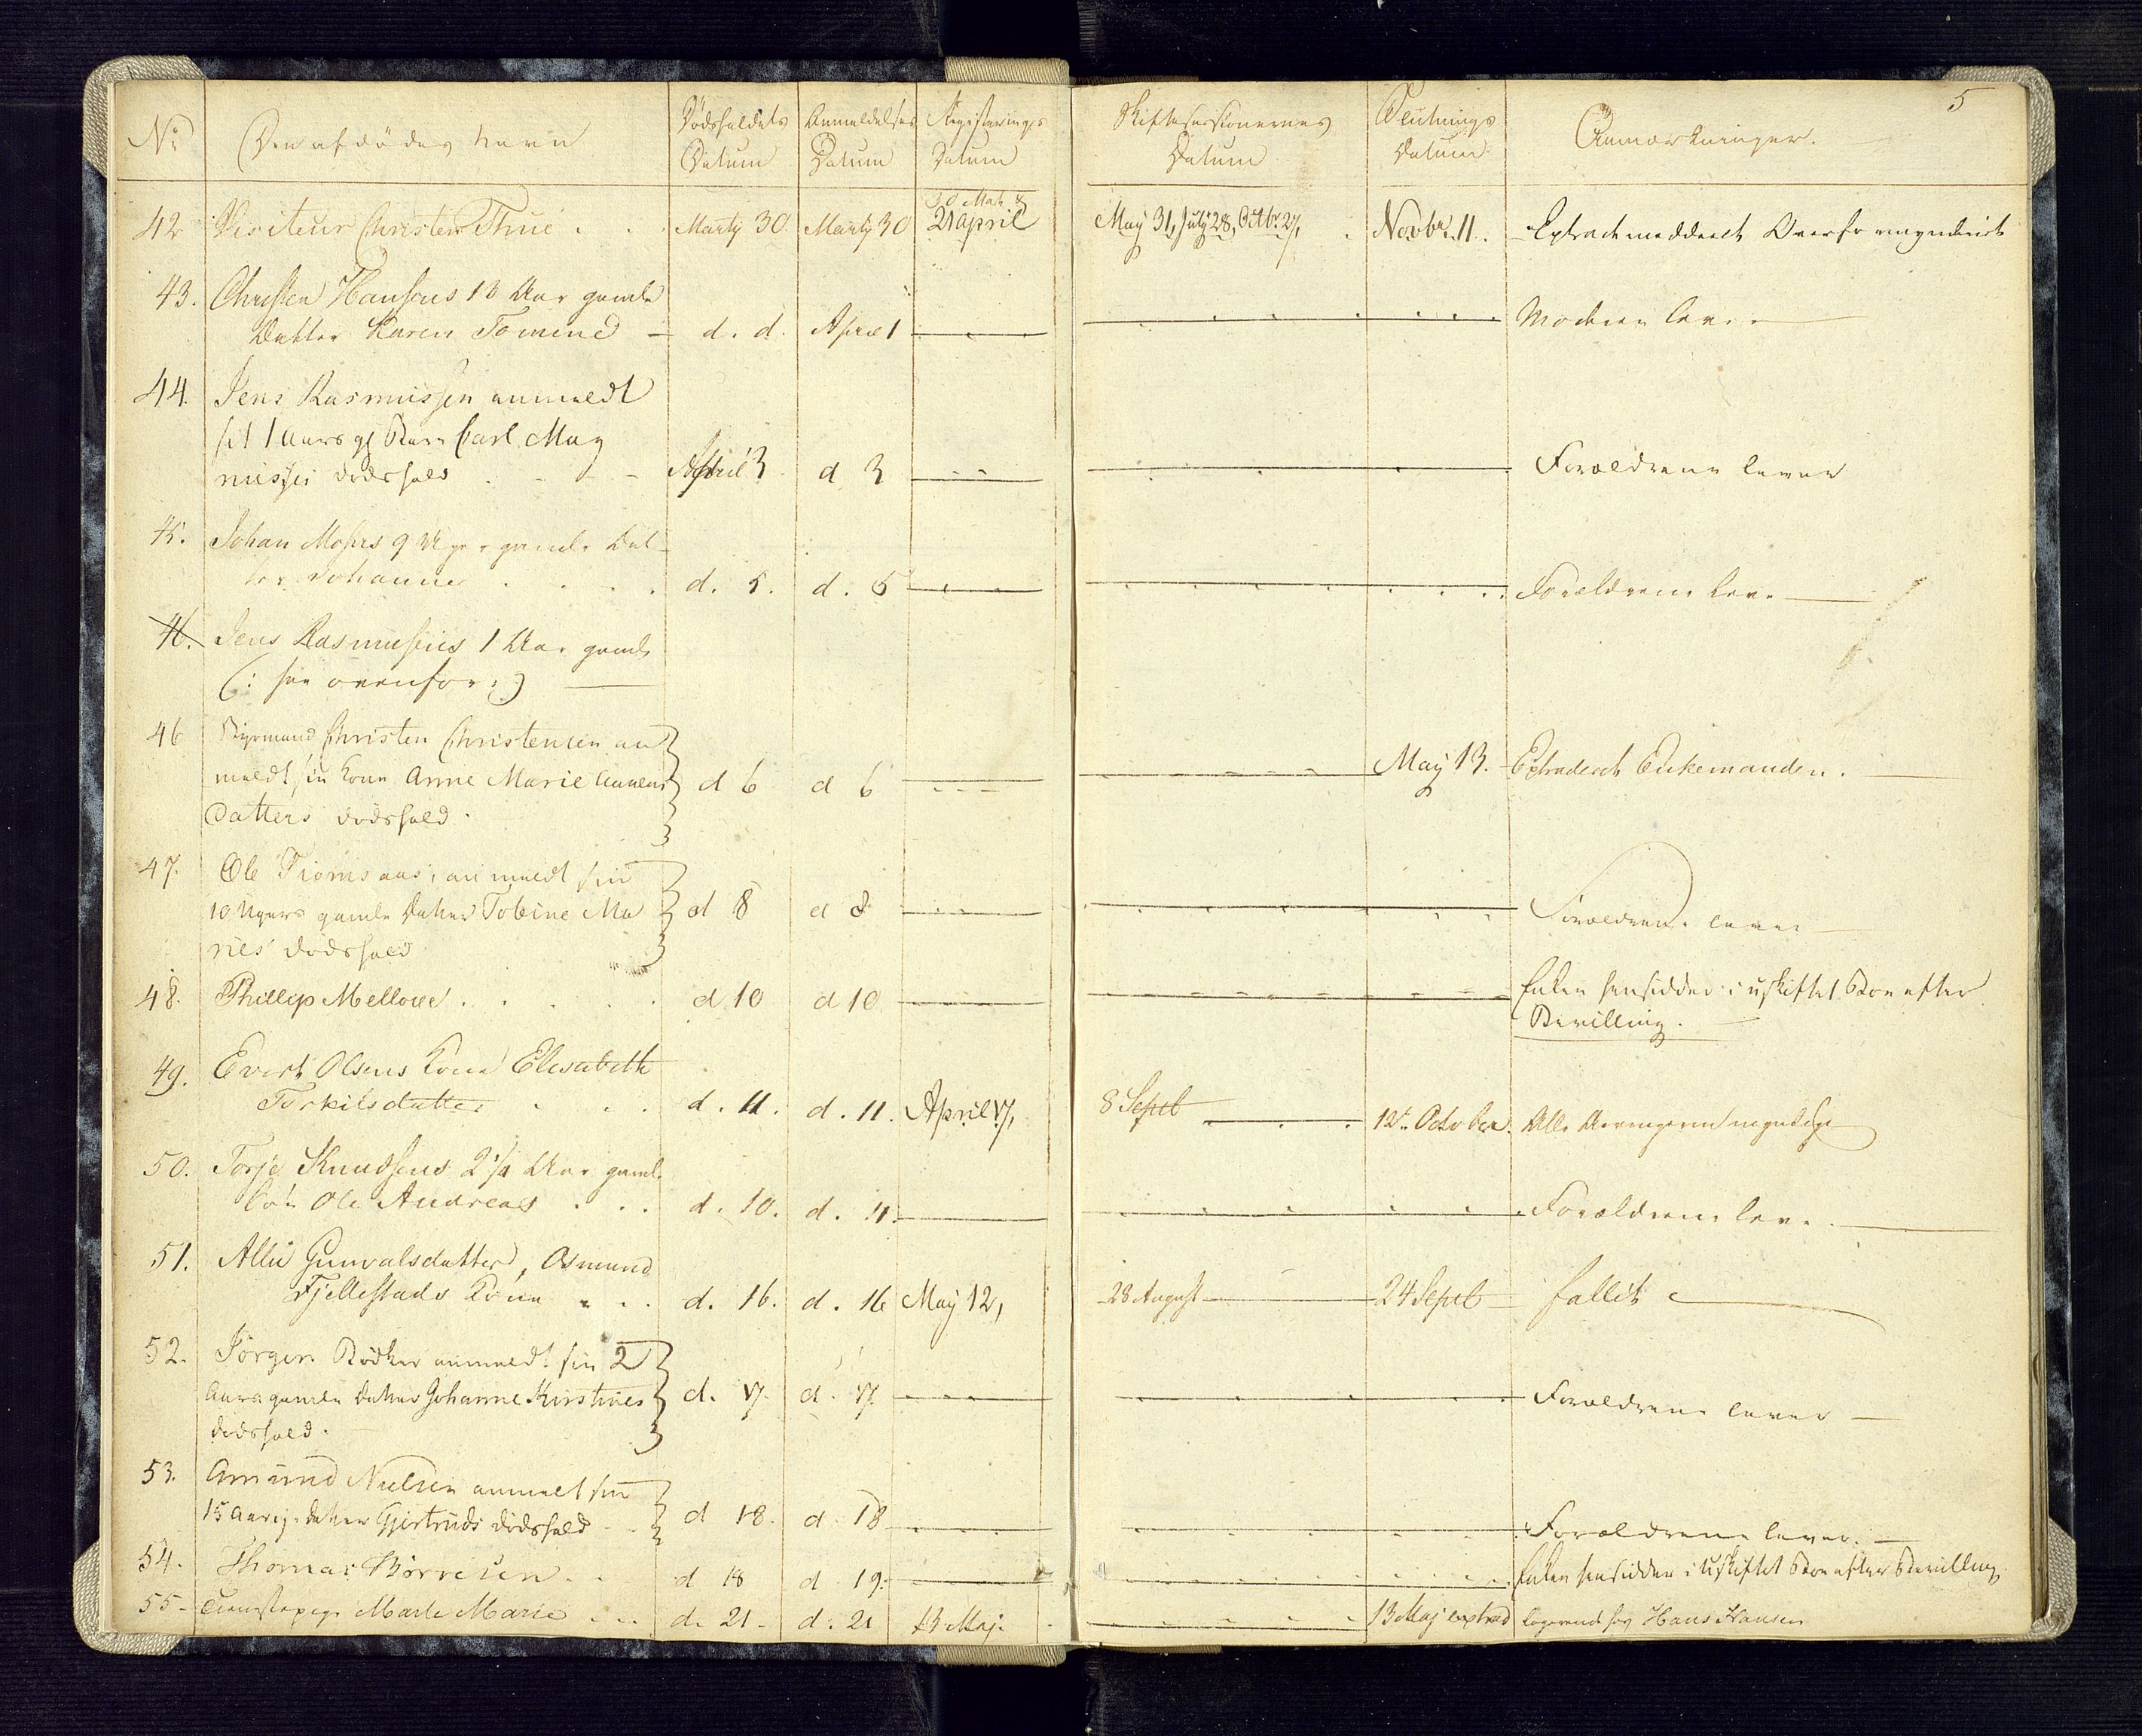 5
No Den afdödes Navn Dödsfaldets Datum Anmeldelses Datum Registerings Datum Skiftesessionernes Datum Slutnings Datum Anmærkninger.
42 Visiteur Christen Thue Marty 30. Marty 30 30 Mart & 21 april May 31, July 28, Octbr. 27, Novbr. 11. Extract meddeelt Overformynderiet
43. Christen Hansens 13 Aar gamle
Datter Karen Tomine d. d. April 1 Moderen lever
44. Jens Rasmussen anmeldt
sit 1 Aars gl Barn Carl Mag
nussei dødsfald April 3 d 3 Forældrene lever
45. Johan Mohrs 9 Uger gamle Dat
ter Johanne d. 5. d. 5 Forældrene leve
46. Jens Rasmusens 1 Aar gamle
(: see ovenfor :)
46 Byemand Christen Christensen an
meldt sin Kone Anne Marie Aanens
Datters dødsfald. d 6 d 6 May 13. Extraderet Enkemanden.
47. Ole Tiomsaas, anmeldt sin
10 Ugers gamle Datter Tobine Ma
ries dødsfald d 8 d 8 Forældrene lever
48. Phillip Mellove d 10 d 10 Enken hensidder i uskiftet Boe efter
Bevilling.
49. Evert Olsens Kone Elisabeth
Torkilsdatter d. 11. d. 11. April 17, 8 Septb 12te October. Alle Arvingerne myndige
50. Torje Knudsens 2 1/4 Aar gamle
Søn Ole Andreas d. 10. d. 11. Forældrene leve.
51. Allie Gunvalsdatter, Osmund
Fjellestads Kone d. 16. d. 16 May 12, 28 August 24 Septb fallit
52. Jørgen Bødker anmeldt sin 2
Aars gamle Datter Johanne Kirstines
dødsfald. d. 17. d. 17. Forældrene lever
53. Amund Nielsen anmelt sin
15 aarige datter Gjertruds dødsfald d 18. d. 18 Forældrene lever.
54. Thomas Børresen d 18 d 19. Enken hensidder i Uskiftet Boe efter Bevilling.
55. Tienestepige Marte Marie d. 21 d. 21 13 Maj. 13 Maj extrad logerende hos Hans Hansen